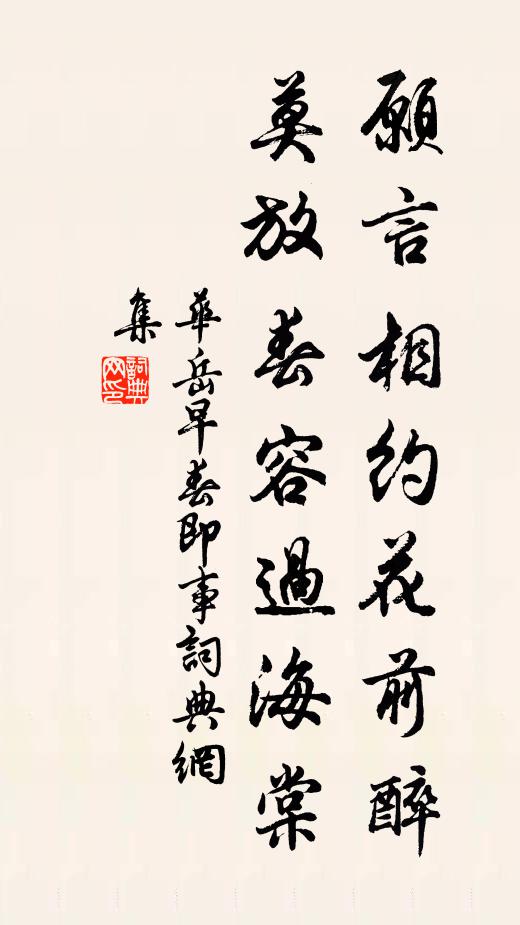 願言相約花前醉
莫放春容過海棠
華岳早春即事詞典網
集
詞典網印